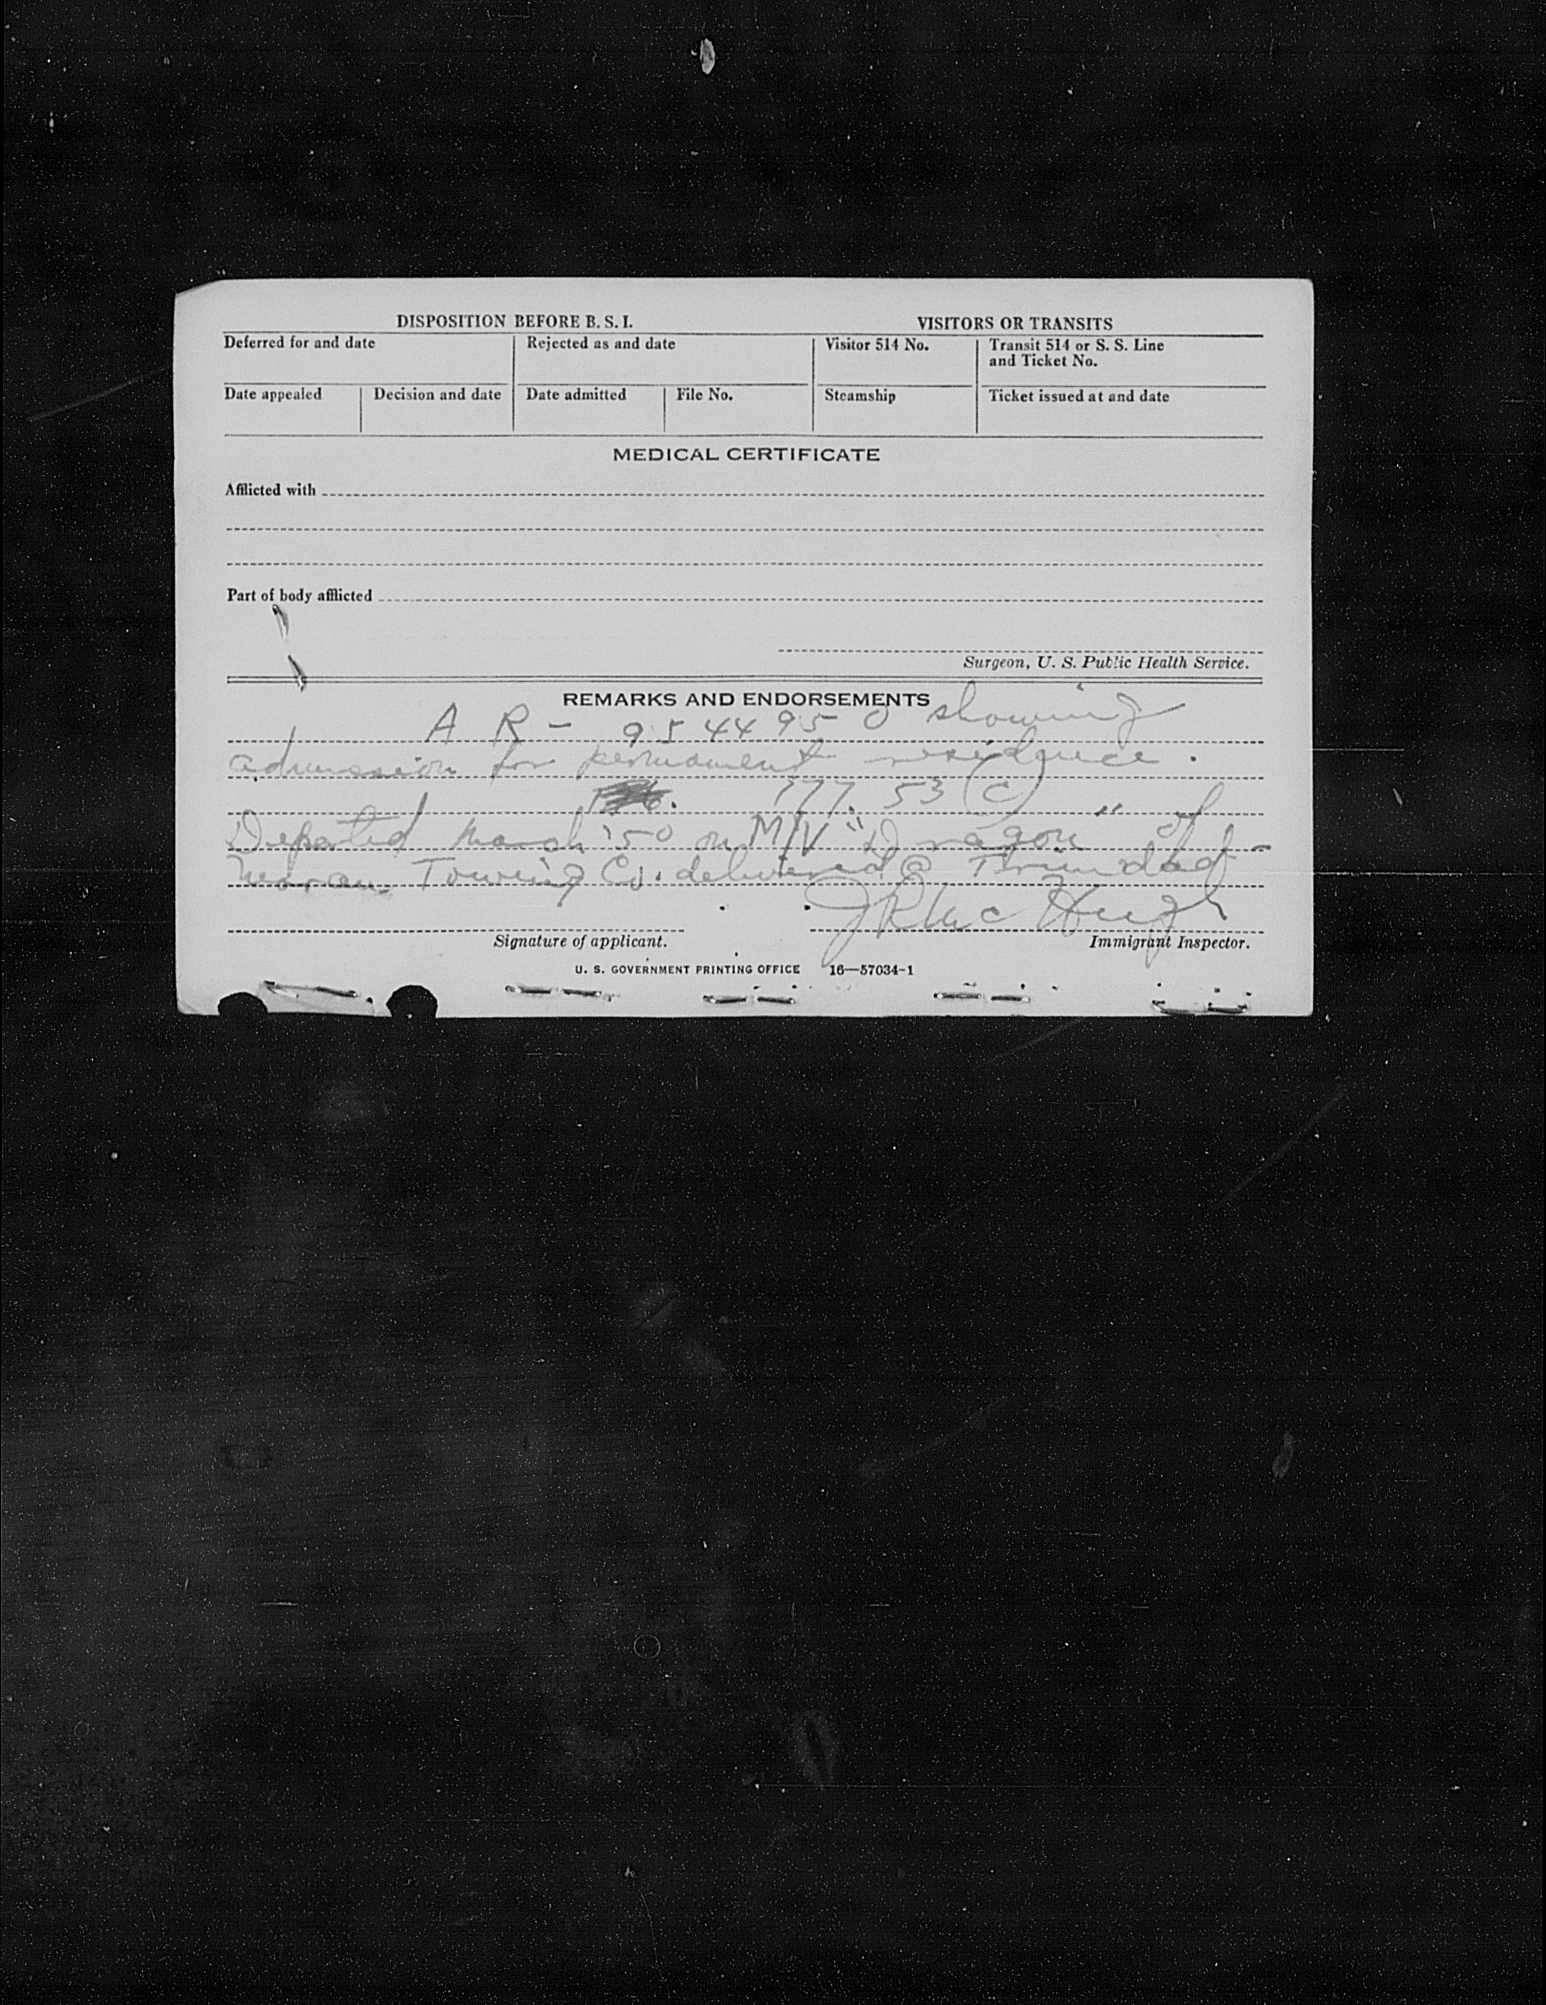 DISPOSITION BEFORE B. S. I.
VISITORS OR TRANSITS
Deferred for and date
Rejected as and date
Visitor 514 No.
Transit 514 or S. S. Line
and Ticket No.
Date appealed
Decision and date
Date admitted
File No.
Steamship
Ticket issued at and date
MEDICAL CERTIFICATE
Afflicted with
Part of body afflicted
Surgeon, U. S. Public Health Service.
REMARKS AND ENDORSEMENTS
A R - 9544950 showing
admission for permanent residence.
177. 53 (c)
Departed March '50 on M/V "Dragon" of
Moran Towing Co. delivered @ Trinidad -
J R McHugh
Signature of applicant.
Immigrant Inspector.
U. S. GOVERNMENT PRINTING OFFICE 16—57034-1